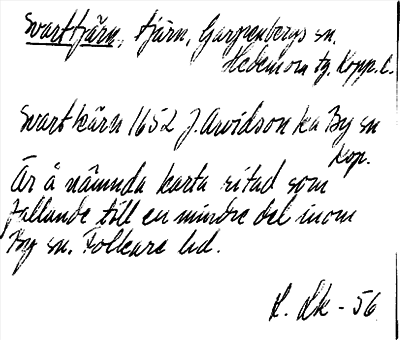 Svarttjärn, tjärn, Garpenbergs sn.
Hedemora tg, Kopp. l.
Svart kärn 1652 J. Arvidson ka By sn
Kop.
Är å nämnda karta ritad som
fallande till en mindre del inom
By sn. Folkare hd.
- 56